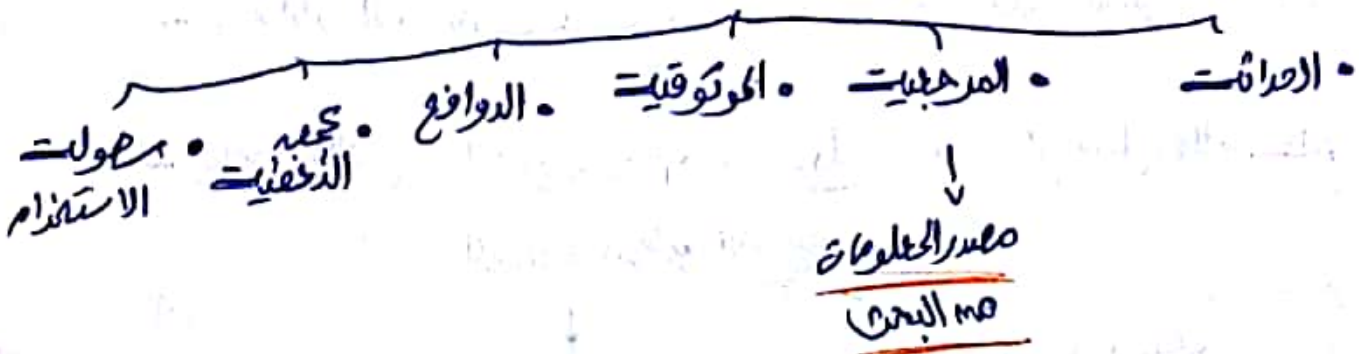 • الحداثة
• المرجعية
• الموثوقية
• الدوافع
• عمق التغطية
• سهولة
الاستخدام
↓
مصدر المعلومات
من البحث